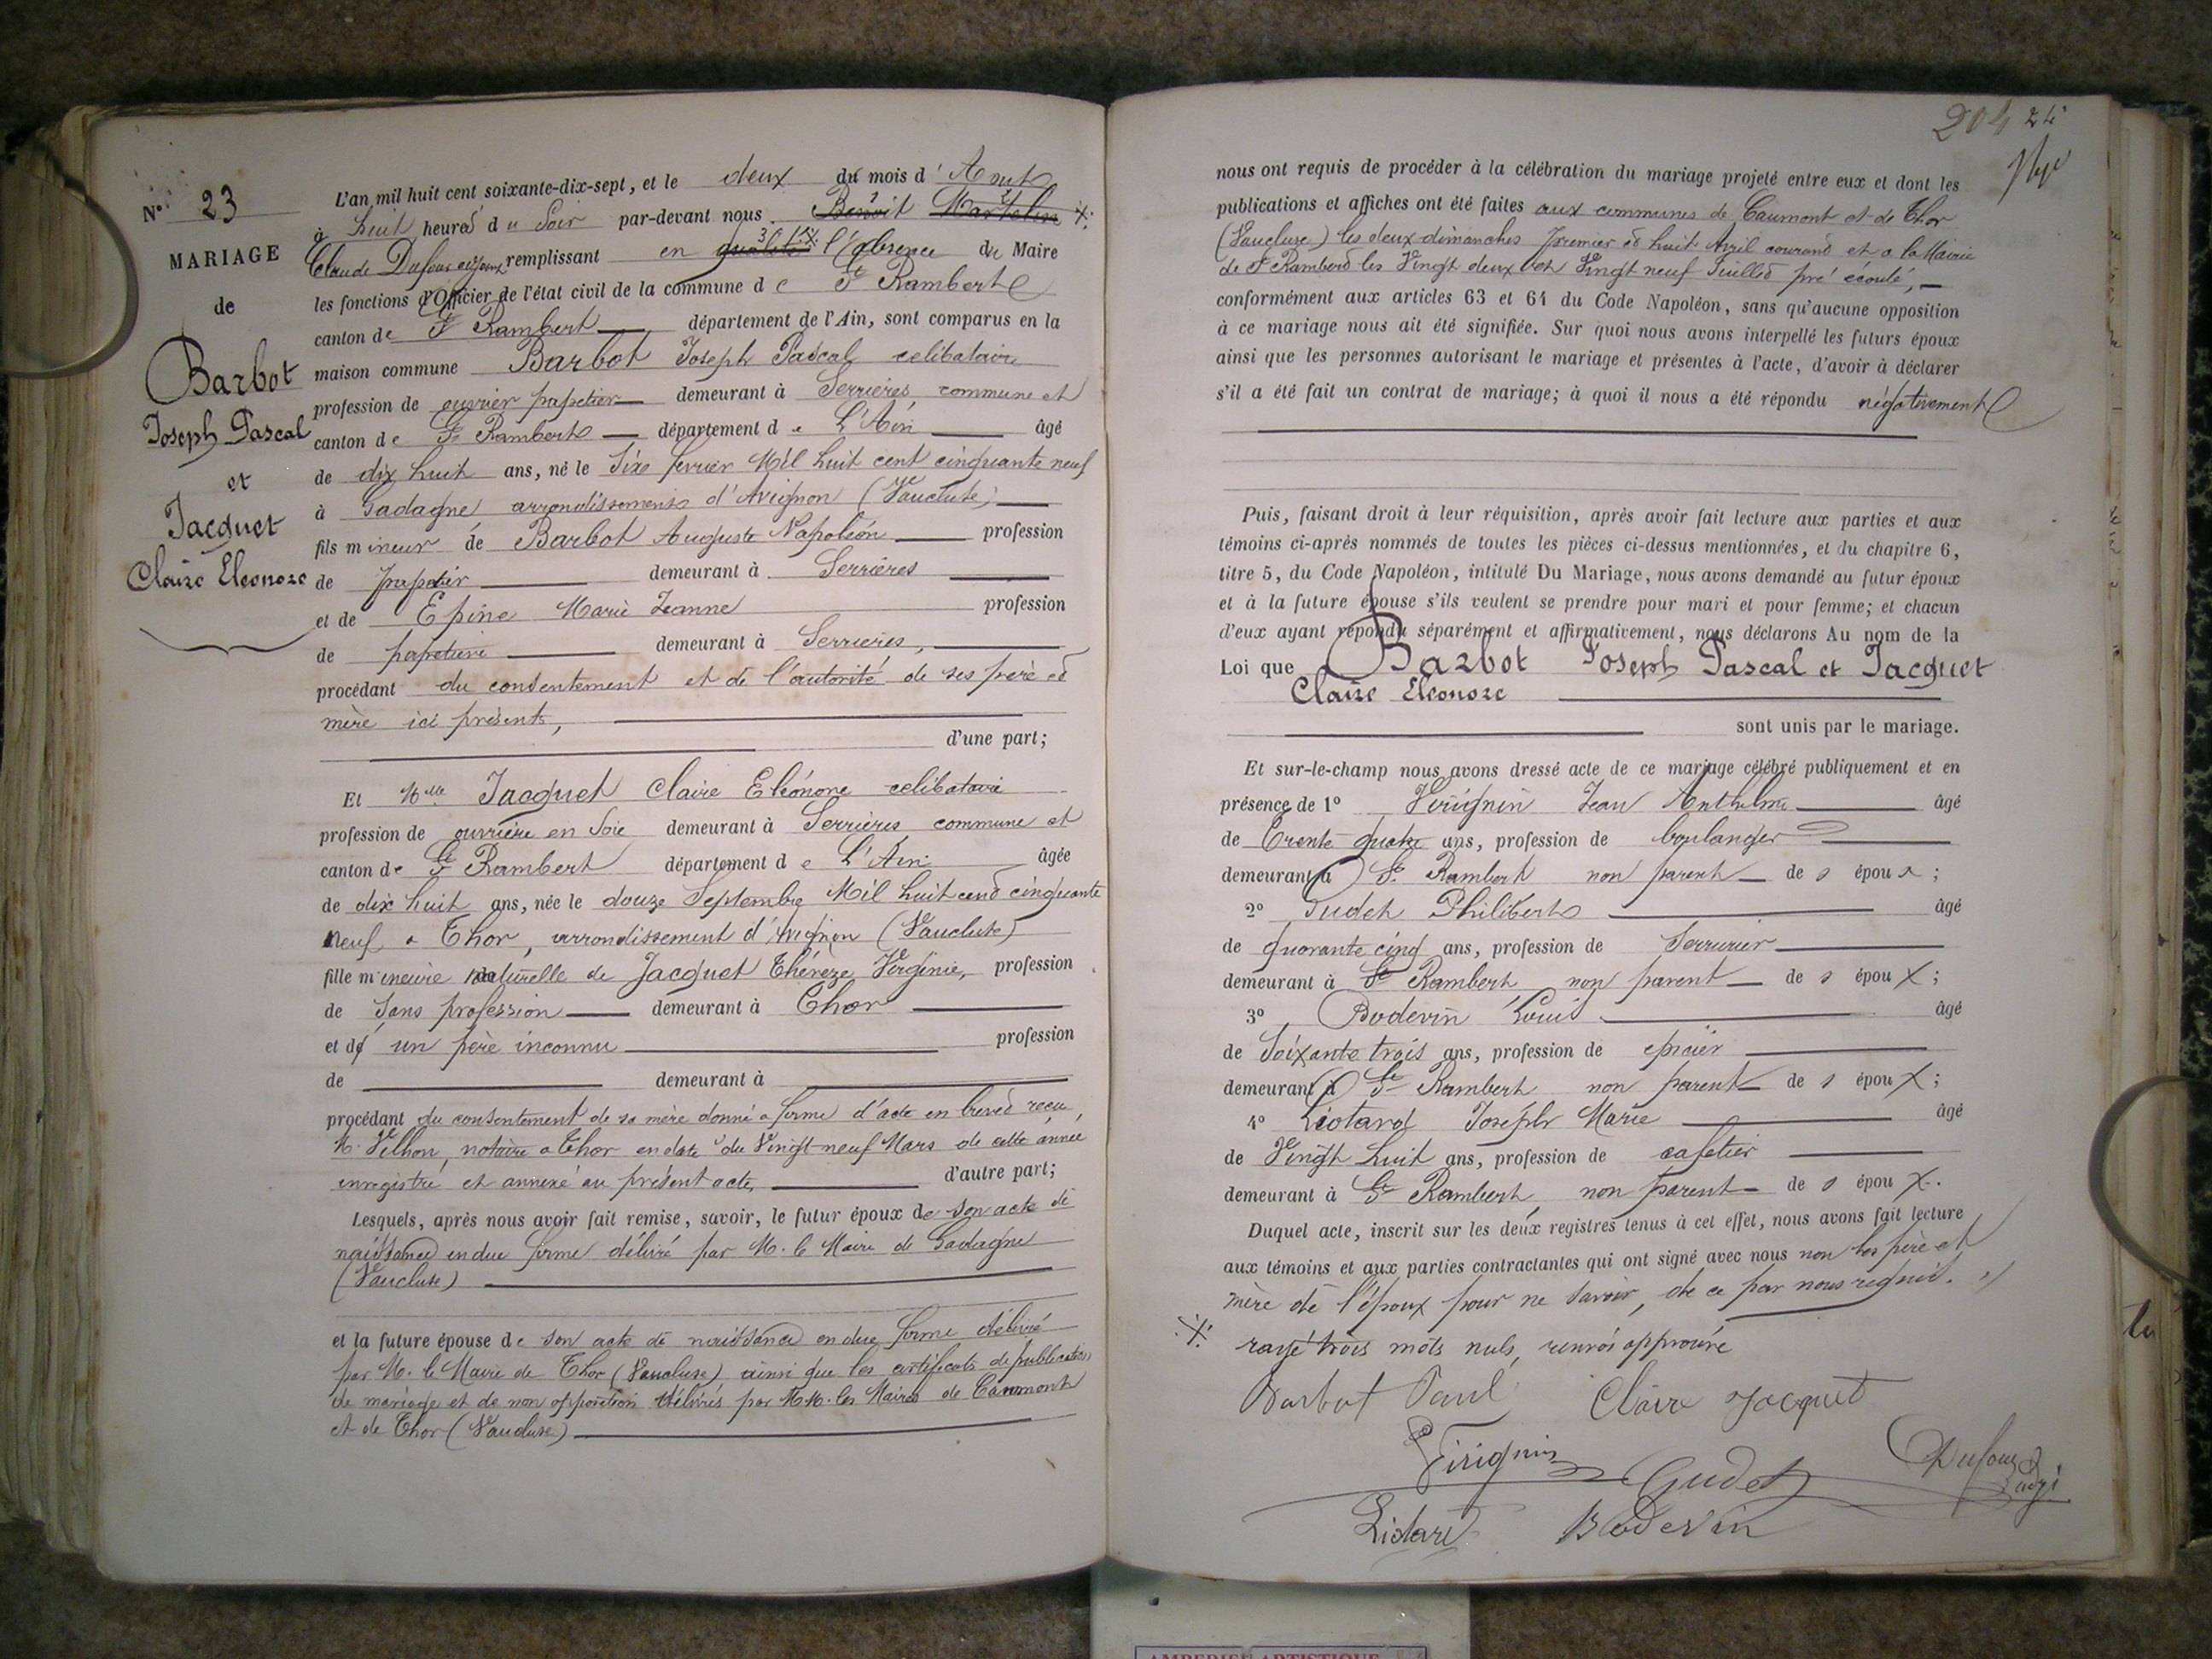 N° 23
MARIAGE
de
Barbot
Joseph Pascal
et
Jacquet
Claire Eleonore
L'an mil huit cent soixante-dix-sept, et le deux du mois d'Aout
à huit heures du Soir par-devant nous Benoit Marthelin
Claude Dufour adjoint remplissant en qualité l'absence du Maire
les fonctions d'Officier de l'état civil de la commune de St Rambert
canton de St Rambert département de l'Ain, sont comparus en la
maison commune Barbot Joseph Pascal celibataire
profession de ouvrier papetier demeurant à Serrières, commune et
canton de St Rambert département de L'Ain âgé
de dix huit ans, né le Six fevrier Mil huit cent cinquante neuf
à Gadagne arrondissement d'Avignon (Vaucluse)
fils mineur de Barbot Auguste Napoléon profession
de papetier demeurant à Serrières
et de Epine Marie Jeanne profession
de papetière demeurant à Serrieres,
procédant du consentement et de l'autorité de ses père et
mère ici présents,
d'une part;
Et Mlle Jacquet Claire Eléonore celibataire
profession de ouvrière en Soie demeurant à Serrières commune et
canton de St Rambert département de L'Ain âgée
de dix huit ans, née le douze Septembre Mil huit cent cinquante
neuf à Thor, arrondissement d'Avignon (Vaucluse)
fille mineure naturelle de Jacquet Thérèze Virginie, profession
de Sans profession demeurant à Thor
et de un père inconnu profession
de demeurant à
procédant du consentement de sa mère donné a forme d'acte en brevet reçu,
M. Vilhon, notaire a Thor en date du Vingt neuf Mars de cette année
enregistré et annéxé au présent acte, d'autre part;
Lesquels, après nous avoir fait remise, savoir, le futur époux de son acte de
naissance en due forme délivré par M. le Maire de Gadagne
(Vaucluse)
et la future épouse de son acte de naissance en due forme délivré
par M. le Maire de Thor (Vaucluse) ainsi que les certificats de publication
de mariage et de non opposition délivrés par MM. les Maires de Caumont
et de Thor (Vaucluse)
204 24
nous ont requis de procéder à la célébration du mariage projeté entre eux et dont les
publications et affiches ont été faites aux communes de Caumont et de Thor
(Vaucluse) les deux dimanches Premier et huit Avril courant et a la Mairie
de St Rambert les Vingt deux et Vingt neuf Juillet pré écoulé,
conformément aux articles 63 et 64 du Code Napoléon, sans qu'aucune opposition
à ce mariage nous ait été signifiée. Sur quoi nous avons interpellé les futurs époux
ainsi que les personnes autorisant le mariage et présentes à l'acte, d'avoir à déclarer
s'il a été fait un contrat de mariage; à quoi il nous a été répondu négativement
Puis, faisant droit à leur réquisition, après avoir fait lecture aux parties et aux
témoins ci-après nommés de toutes les pièces ci-dessus mentionnées, et du chapitre 6,
titre 5, du Code Napoléon, intitulé Du Mariage, nous avons demandé au futur époux
et à la future épouse s'ils veulent se prendre pour mari et pour femme; et chacun
d'eux ayant répondu séparément et affirmativement, nous déclarons Au nom de la
Loi que Barbot Joseph Pascal et Jacquet
Claire Eleonore
sont unis par le mariage.
Et sur-le-champ nous avons dressé acte de ce mariage célébré publiquement et en
présence de 1° Virignin Jean Anthelme âgé
de Trente quatre ans, profession de boulanger
demeurant à St Rambert non parent des époux;
2° Gudet Philibert âgé
de quarante cinq ans, profession de Serrurier
demeurant à St Rambert non parent des époux;
3° Bodevin Louis âgé
de Soixante trois ans, profession de epicier
demeurant à St Rambert non parent des époux;
4° Liotard Joseph Marie âgé
de Vingt huit ans, profession de cafetier
demeurant à St Rambert non parent des époux.
Duquel acte, inscrit sur les deux registres tenus à cet effet, nous avons fait lecture
aux témoins et aux parties contractantes qui ont signé avec nous non les père et
mère de l'époux pour ne savoir, de ce par nous requis.
rayé trois mots nuls, renvoi approuvé
Barbot Paul Claire Jacquet
Virignin Gudet Dufour
adji
Liotard Bodevin
AMBERIEU ARTISTIQUE